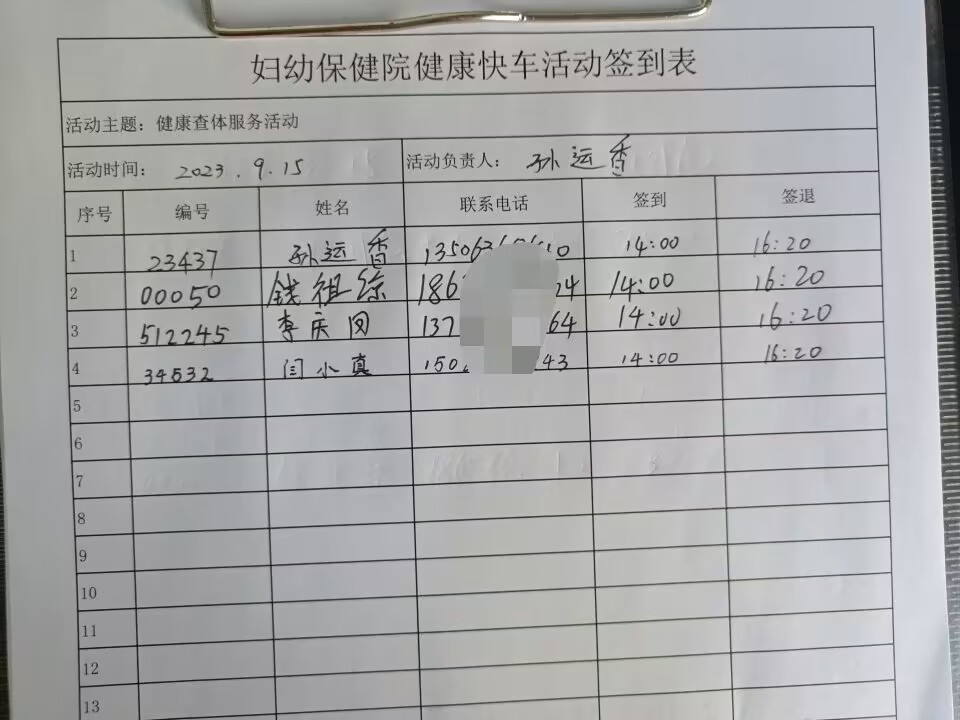 妇幼保健院健康快车活动签到表
活动主题：健康查体服务活动
活动时间： 2023.9.15 活动负责人： 孙运香
序号 编号 姓名 联系电话 签到 签退
1 23437 孙运香 14:00 16:20
2 00050 钱祖综 186 24 14:00 16:20
3 512245 李庆凤 137 64 14:00 16:20
4 34532 闫小真 150 43 14:00 16:20
5
6
7
8
9
10
11
12
13